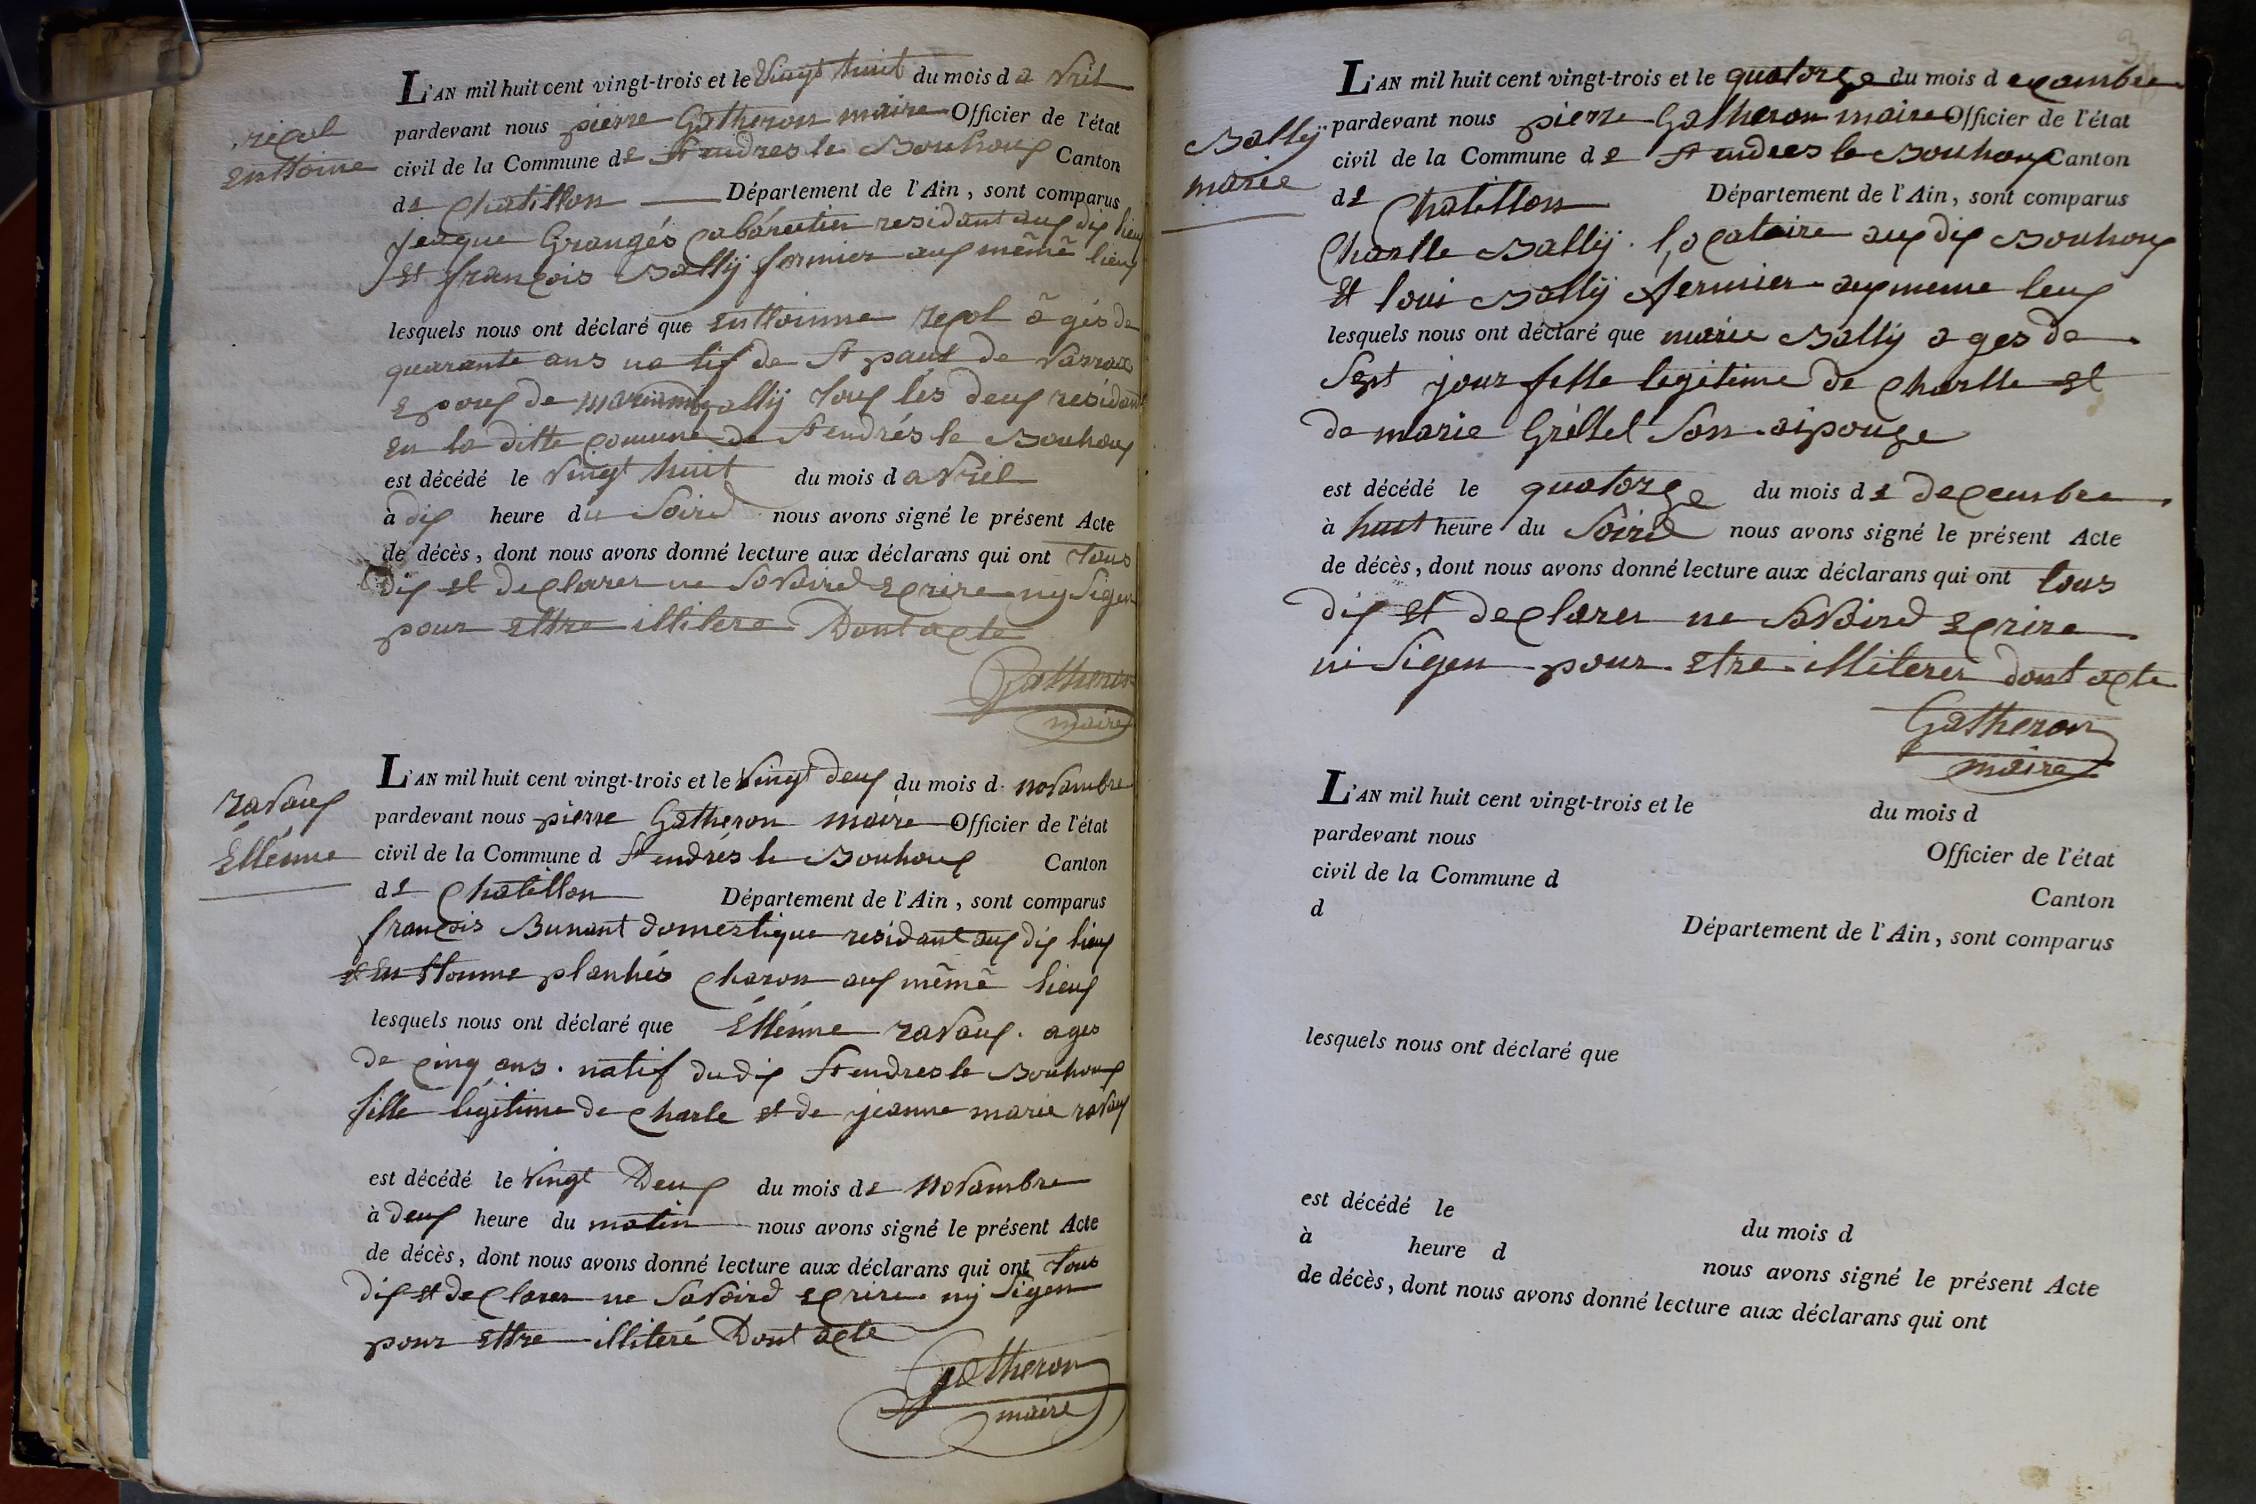 L'AN mil huit cent vingt-trois et le Vingt huit du mois d a Vril
pardevant nous pierre Gatheron maire Officier de l'état
civil de la Commune de St endres le Bouhoux Canton
de Chatillon Département de l'Ain, sont comparus
Jeaque Grangés Cabarétier residant aux dix lieux
Et françois Bally fermier aux même lieux
lesquels nous ont déclaré que enttoinne regol àgés de
quarante ans na tif de St paul de Varrax
Epoux de marianne Bally tous lés deux résidant
En la ditte comune de St endrés le Bouhoux
est décédé le Vingt huit du mois d a Vril
à dix heure du Soird nous avons signé le présent Acte
de décès, dont nous avons donné lecture aux déclarans qui ont tous
dix et declarer ne savoird Ecrire ny Sigen
pour Ettre illitere Dont acte
Gatheron
maire
regol
enttoine
L'AN mil huit cent vingt-trois et le Vingt deux du mois d novambre
pardevant nous pierre Gatheron maire Officier de l'état
civil de la Commune d St endrés le Bouhoux Canton
de Chatillon Département de l'Ain, sont comparus
françois Bunant domestique residant aux dix lieux
et enttoinne planhés charon aux même lieux
lesquels nous ont déclaré que Etténne ravaux ages
de cinq ans. natif du dix St endres le Bouhoux
fille légitime de Charle et de jeanne marie ravaux
est décédé le Vingt Deux du mois de novambre
à deux heure du matin nous avons signé le présent Acte
de décès, dont nous avons donné lecture aux déclarans qui ont tous
dix et declarer ne savoird ecrire ny Sigen
pour Ettre illiteré Dont acte
Gatheron
maire
ravaux
Etténne
L'AN mil huit cent vingt-trois et le quatorze du mois d ecambre
pardevant nous pierre Gatheron maire Officier de l'état
civil de la Commune de St endres le Bouhoux Canton
de Chatillon Département de l'Ain, sont comparus
Charlle Bally locataire aux dix Bouhoux
Et loui Bally fermier aux meme leux
lesquels nous ont déclaré que marie Bally ages de
Sept jour fille legitime de Charlle et
de marie Gréllel son aipouze
est décédé le quatorze du mois de decembre
à huit heure du Soird nous avons signé le présent Acte
de décès, dont nous avons donné lecture aux déclarans qui ont tous
dix et declarer ne savoird Ecrire
ni Sigen pour Etre illiterer dont acte
Gatheron
maire
Bally
marie
L'AN mil huit cent vingt-trois et le du mois d
pardevant nous Officier de l'état
civil de la Commune d Canton
d Département de l'Ain, sont comparus
lesquels nous ont déclaré que
est décédé le du mois d
à heure d nous avons signé le présent Acte
de décès, dont nous avons donné lecture aux déclarans qui ont